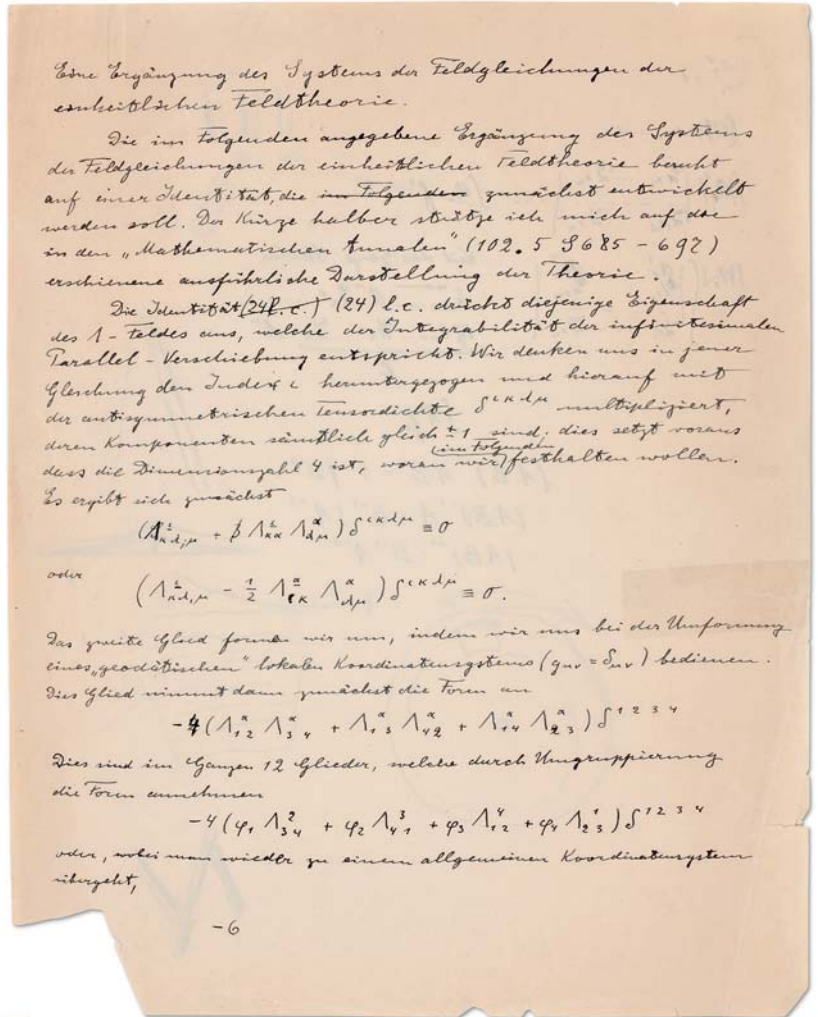 Eine Ergänzung des Systems der Feldgleichungen der
einheitlichen Feldtheorie.
Die im Folgenden angegebene Ergänzung des Systems
der Feldgleichungen der einheitlichen Feldtheorie beruht
auf einer Identität, die im Folgenden zunächst entwickelt
werden soll. Der Kürze halber stütze ich mich auf die
in den „Mathematischen Annalen" (102. S 685 - 697)
erschienene ausführliche Darstellung der Theorie.
Die Identität (24 l.c.) (24) l.c. drückt diejenige Eigenschaft
des Λ-Feldes aus, welche der Integrabilität der infinitesimalen
Parallel-Verschiebung entspricht. Wir denken uns in jener
Gleichung den Index ι heruntergezogen und hierauf mit
der antisymmetrischen Tensordichte δ^{ικλμ} multipliziert,
deren Komponenten sämtlich gleich ± 1 sind; dies setzt voraus
dass die Dimensionszahl 4 ist, woran wir (im Folgenden) festhalten wollen.
Es ergibt sich zunächst
oder
(Λ^{ι}_{κλ;μ} - 1/2 Λ^{α}_{ικ} Λ^{α}_{λμ}) δ^{ικλμ} ≡ 0.
Das zweite Glied formen wir um, indem wir uns bei der Umformung
eines „geodätischen" lokalen Koordinatensystems (g_{μν} = δ_{μν}) bedienen.
Dies Glied nimmt dann zunächst die Form an
-4(Λ^{α}_{12} Λ^{α}_{34} + Λ^{α}_{13} Λ^{α}_{42} + Λ^{α}_{14} Λ^{α}_{23}) δ^{1234}
Dies sind im Ganzen 12 Glieder, welche durch Umgruppierung
die Form annehmen
-4(φ_1 Λ^{2}_{34} + φ_2 Λ^{3}_{41} + φ_3 Λ^{4}_{12} + φ_4 Λ^{1}_{23}) δ^{1234}
oder, wobei man wieder zu einem allgemeinen Koordinatensystem
übergeht,
-6